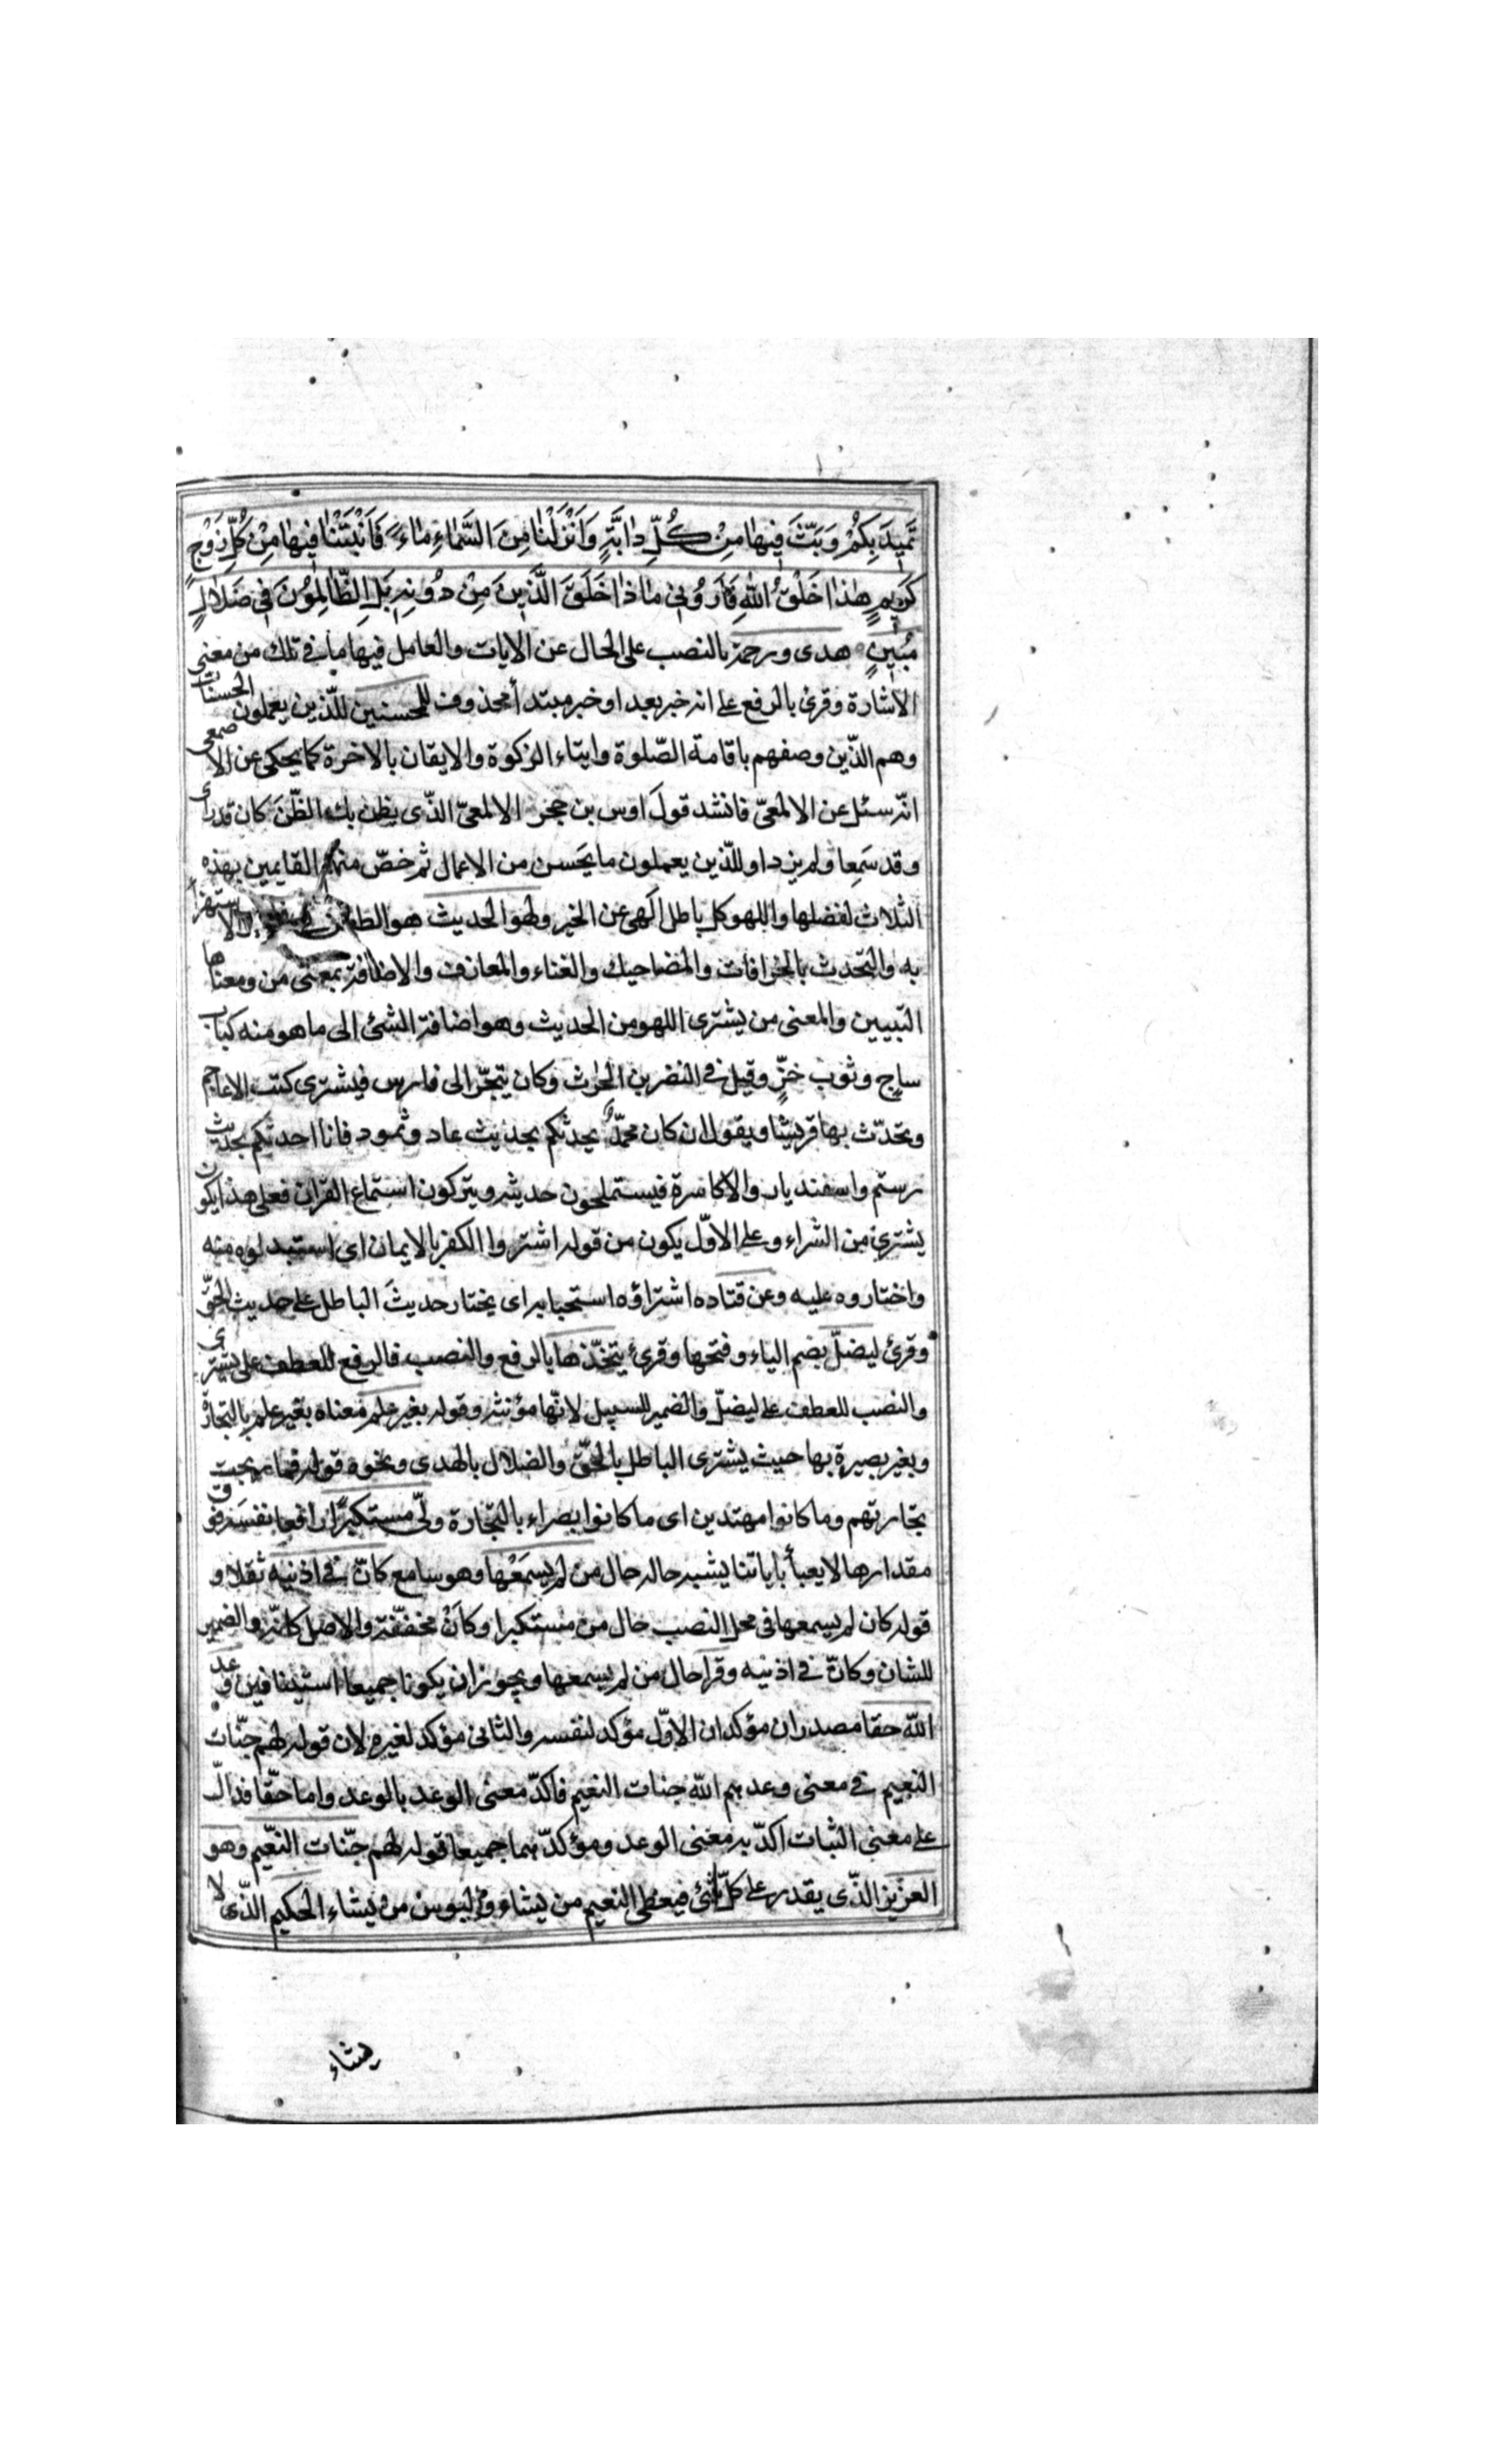 تَمِيدَ بِكُمْ وَبَثَّ فِيهٰا مِنْ كُلِّ دٰابَّةٍ وَاَنْزَلْنٰا مِنَ السَّمٰاءِ مٰاءً فَاَنْبَتْنٰا فِيهٰا مِنْ كُلِّ زَوْجٍ
كَرِيمٍ هٰذٰا خَلْقُ اللّٰهِ فَاَرُونِى مٰاذٰا خَلَقَ الَّذِينَ مِنْ دُونِهِ بَلِ الظّٰالِمُونَ فِى ضَلٰالٍ
مُبِينٍ هدى ورحمة بالنصب على الحال عن الايات والعامل فيها ما فى تلك من معنى
الاشارة وقرئ بالرفع على انه خبر بعد او خبر مبتدأ محذوف للمحسنين للّذين يعملون الحسنات
وهم الّذين وصفهم باقامة الصّلوة وايتاء الزكوة والايقان بالاخرة كما يحكى عن الاصمعى
انّه سئل عن الالمعىّ فانشد قولَ اوس بن حجر الالمعىّ الذّى يظن بك الظّنَ كان قد راى
وقد سَمِعا ولم يزد او للّذين يعملون ما يَحسن من الاعمال ثم خصّ منهم القايمين بهذه
الثلاث لفضلها واللهو كل باطل الهى عن الخير ولهو الحديث هو الطعن فى الاستهزا
به والتحدث بالخرافات والمضاحيك والغناء والمعازف والاضافة بمعنى من ومعناها
التبيين والمعنى من يشترى اللهو من الحديث وهو اضافة الشئ الى ما هو منه كباب
ساج وثوب خزٍّ وقيل فى النضر بن الحارث وكان يتجّر الى فارس فيشترى كتب الاعاجم
وتحدّث بها قريشا ويقول ان كان محمّدٌ يحدثكم بحديث عاد وثمود فانا احدثكم بحديث
رستم واسفنديار والاكاسرة فيستملحون حديثه ويتركون استماع القران فعلى هذا يكون
يشترى من الشراء وعلى الاوّل يكون من قوله اشتروا الكفر بالايمان اى استبدلوه منه
واختاروه عليه وعن قتاده اشتراؤه استحبابه اى يختار حديثَ الباطل على حديث الحقّ
وقرئ ليضلّ بضم الياء وفتحها وقرئ يتخّذها بالرفع والنصب فالرفع للعطف على يشترى
والنصب للعطف على ليضلّ والضمير للسبيل لانّها مؤنثه وقوله بغير علم معناه بغير علم بالتجارة
وبغير بصيرة بها حيث يشترى الباطل بالحقّ والضلال بالهدى ونحوه قوله فما ربحت
تجارتهم وما كانوا مهتدين اى ما كانوا بصراء بالتّجارة ولّى مستكبرًا رافعا نفسَه فوق
مقدارها لا يعبأ باياتنا يشبه حاله حال من لم يسمَعْها وهو سامع كانّ فى اذنيه ثقلا و
قوله كان لم يسمعها فى محل النصب حال من مستكبرا وكاَنْ مخففّة والاصل كانّه والضمير
للشان وكانّ فى اذنيه وقرا حال من لم يسمعها ويجوز ان يكونا جميعا استينافين وعد
اللّه حقا مصدران مؤكدان الاوّل مؤكد لنفسه والثانى مؤكد لغيره لان قوله لهم جنّات
النعيم فى معنى وعدهم اللّه جنات النعيم فاكدّ معنى الوعد بالوعد واما حقّا فدالّ
على معنى الثبات اكدّ به معنى الوعد ومؤكدّهما جميعا قوله لهم جنّات النعّيم وهو
العزيز الذّى يقدر على كلّ شئ فيعطى النعيم من يشاء والبؤس من يشاء الحكيم الذّى لا
يشاء